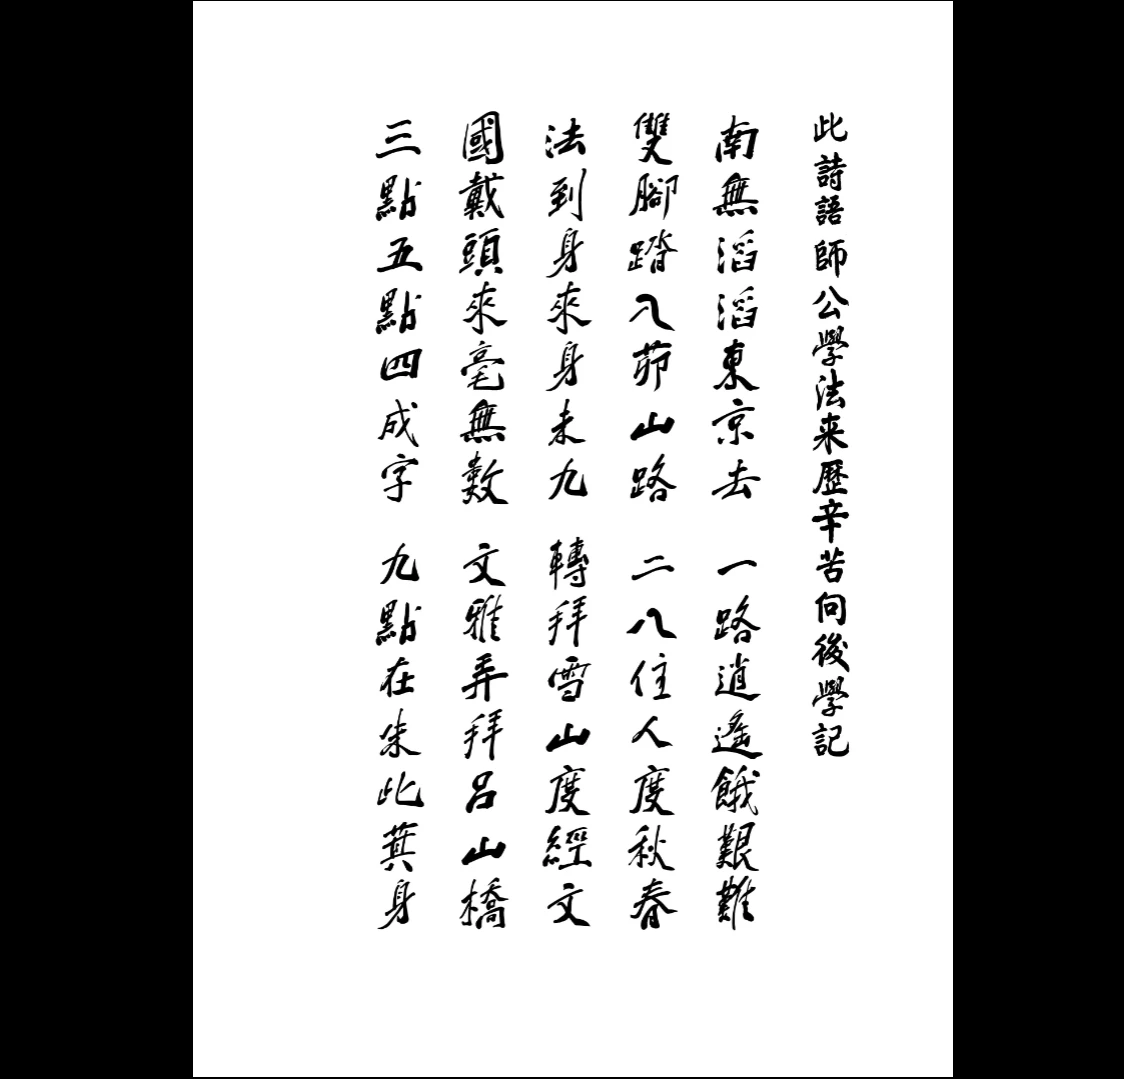 此詩語師公學法来歷辛苦向後學記
南無滔滔東京去 一路逍遙餓艱難
雙腳踏入茆山路 二八住人度秋春
法到身來身未九 轉拜雪山度經文
國戴頭來毫無數 文雅弄拜呂山橋
三點五點四成字 九點在朱此䔇身